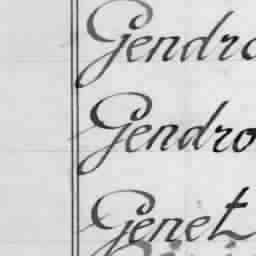 Gendro
Gendro
Genet